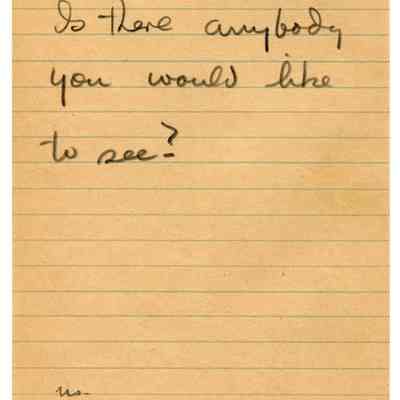 Is there anybody
you would like
to see?
no.